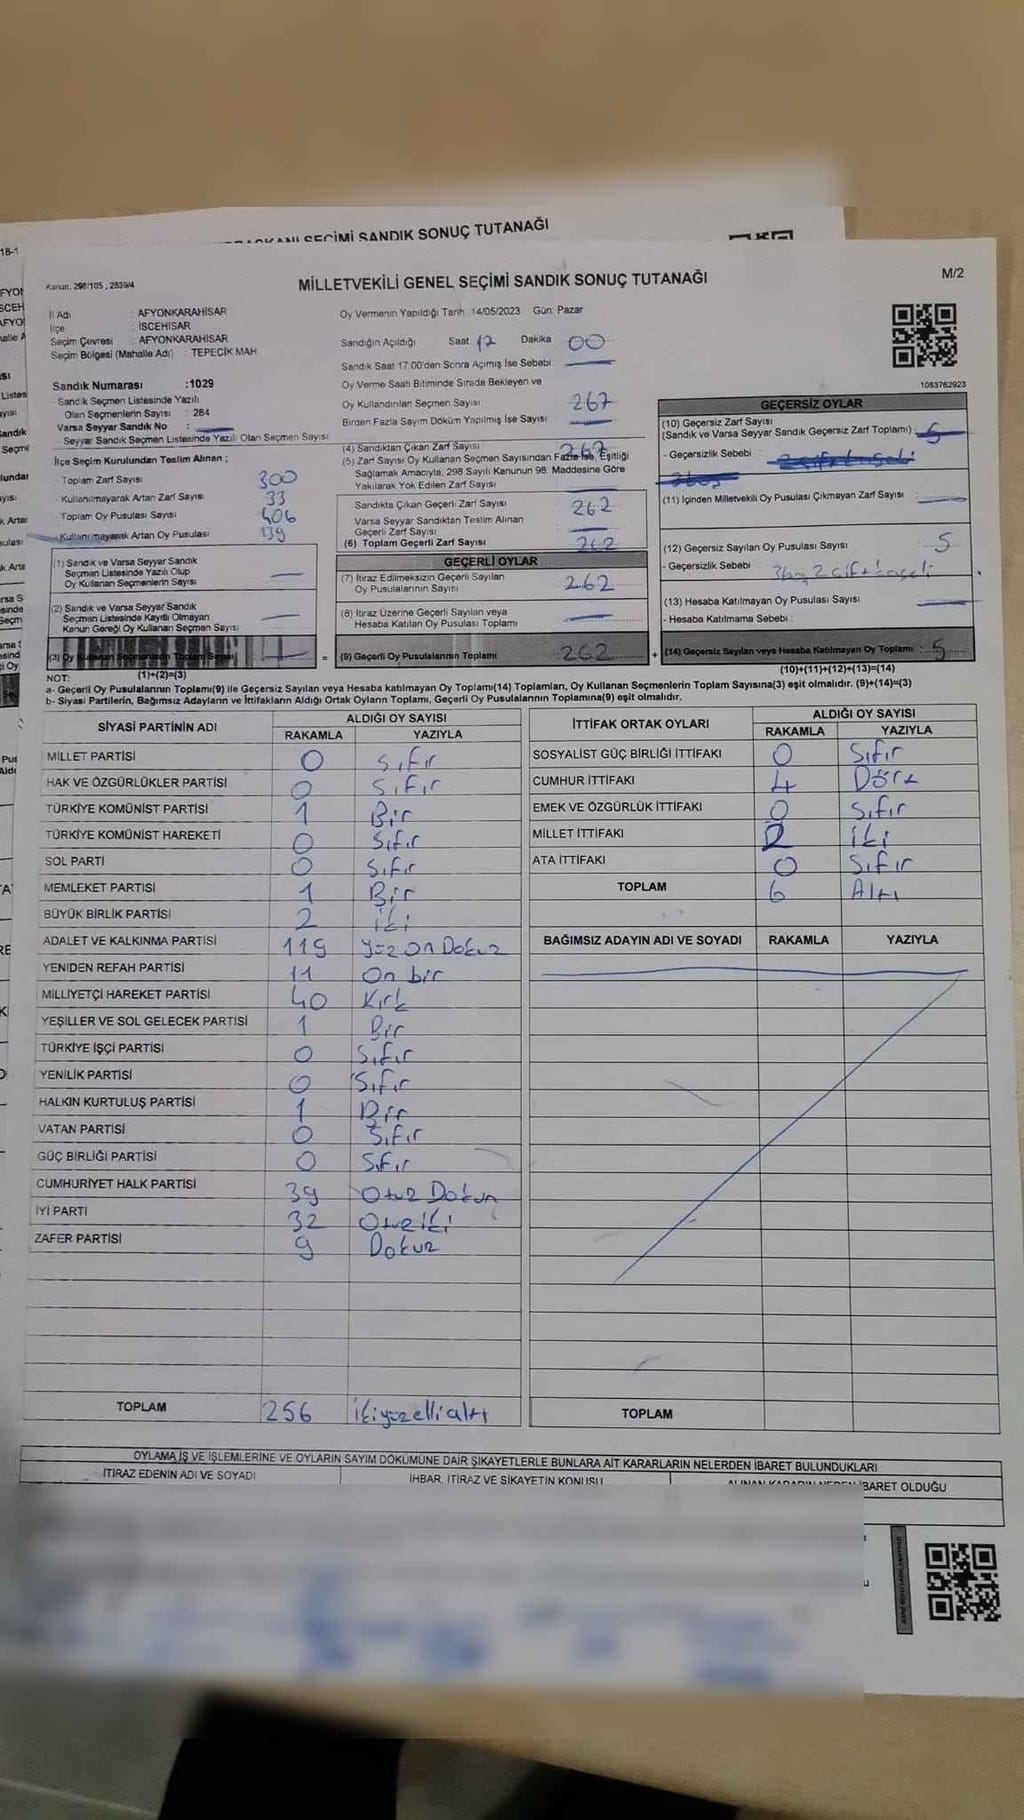 BAŞKANI SEÇİMİ SANDIK SONUÇ TUTANAĞI
18-1
Kanun: 298/105, 2839/4
MİLLETVEKİLİ GENEL SEÇİMİ SANDIK SONUÇ TUTANAĞI
M/2
İl Adı : AFYONKARAHİSAR
İlçe : İSCEHİSAR
Seçim Çevresi : AFYONKARAHİSAR
Seçim Bölgesi (Mahalle Adı) : TEPECİK MAH
Sandık Numarası :1029
- Sandık Seçmen Listesinde Yazılı
Olan Seçmenlerin Sayısı : 284
Varsa Seyyar Sandık No :
- Seyyar Sandık Seçmen Listesinde Yazılı Olan Seçmen Sayısı
İlçe Seçim Kurulundan Teslim Alınan ;
- Toplam Zarf Sayısı 300
- Kullanılmayarak Artan Zarf Sayısı 33
- Toplam Oy Pusulası Sayısı 406
- Kullanılmayarak Artan Oy Pusulası 139
(1) Sandık ve Varsa Seyyar Sandık
Seçmen Listesinde Yazılı Olup
Oy Kullanan Seçmenlerin Sayısı
(2) Sandık ve Varsa Seyyar Sandık
Seçmen Listesinde Kayıtlı Olmayan
Kanun Gereği Oy Kullanan Seçmen Sayısı
(3) Oy Kullanan Seçmenlerin Toplam Sayısı
(1)+(2)=(3)
Oy Vermenin Yapıldığı Tarih 14/05/2023 Gün: Pazar
Sandığın Açıldığı Saat 17 Dakika 00
Sandık Saat 17:00'den Sonra Açılmış İse Sebebi
Oy Verme Saati Bitiminde Sırada Bekleyen ve
Oy Kullandırılan Seçmen Sayısı 267
Birden Fazla Sayım Döküm Yapılmış İse Sayısı
(4) Sandıktan Çıkan Zarf Sayısı 267
(5) Zarf Sayısı Oy Kullanan Seçmen Sayısından Fazla İse, Eşitliği
Sağlamak Amacıyla, 298 Sayılı Kanunun 98. Maddesine Göre
Yakılarak Yok Edilen Zarf Sayısı
Sandıkta Çıkan Geçerli Zarf Sayısı 262
Varsa Seyyar Sandıktan Teslim Alınan
Geçerli Zarf Sayısı
(6) Toplam Geçerli Zarf Sayısı 262
GEÇERLİ OYLAR
(7) İtiraz Edilmeksizin Geçerli Sayılan
Oy Pusulalarının Sayısı 262
(8) İtiraz Üzerine Geçerli Sayılan veya
Hesaba Katılan Oy Pusulası Toplamı
= (9) Geçerli Oy Pusulalarının Toplamı 262
1063782923
GEÇERSİZ OYLAR
(10) Geçersiz Zarf Sayısı
(Sandık ve Varsa Seyyar Sandık Geçersiz Zarf Toplamı) 5
- Geçersizlik Sebebi
(11) İçinden Milletvekili Oy Pusulası Çıkmayan Zarf Sayısı
(12) Geçersiz Sayılan Oy Pusulası Sayısı 5
- Geçersizlik Sebebi 3 boş 2 çift kaşeli
(13) Hesaba Katılmayan Oy Pusulası Sayısı
- Hesaba Katılmama Sebebi
+ (14) Geçersiz Sayılan veya Hesaba Katılmayan Oy Toplamı 5
(10)+(11)+(12)+(13)=(14)
NOT:
a- Geçerli Oy Pusulalarının Toplamı(9) ile Geçersiz Sayılan veya Hesaba katılmayan Oy Toplamı(14) Toplamları, Oy Kullanan Seçmenlerin Toplam Sayısına(3) eşit olmalıdır. (9)+(14)=(3)
b- Siyasi Partilerin, Bağımsız Adayların ve İttifakların Aldığı Ortak Oyların Toplamı, Geçerli Oy Pusulalarının Toplamına(9) eşit olmalıdır.
SİYASİ PARTİNİN ADI ALDIĞI OY SAYISI
RAKAMLA YAZIYLA
MİLLET PARTİSİ 0 Sıfır
HAK VE ÖZGÜRLÜKLER PARTİSİ 0 Sıfır
TÜRKİYE KOMÜNİST PARTİSİ 1 Bir
TÜRKİYE KOMÜNİST HAREKETİ 0 Sıfır
SOL PARTİ 0 Sıfır
MEMLEKET PARTİSİ 1 Bir
BÜYÜK BİRLİK PARTİSİ 2 iki
ADALET VE KALKINMA PARTİSİ 119 Yüz On Dokuz
YENİDEN REFAH PARTİSİ 11 On bir
MİLLİYETÇİ HAREKET PARTİSİ 40 Kırk
YEŞİLLER VE SOL GELECEK PARTİSİ 1 Bir
TÜRKİYE İŞÇİ PARTİSİ 0 Sıfır
YENİLİK PARTİSİ 0 Sıfır
HALKIN KURTULUŞ PARTİSİ 1 Bir
VATAN PARTİSİ 0 Sıfır
GÜÇ BİRLİĞİ PARTİSİ 0 Sıfır
CUMHURİYET HALK PARTİSİ 39 Otuz Dokuz
İYİ PARTİ 32 Otuz iki
ZAFER PARTİSİ 9 Dokuz
TOPLAM 256 ikiyüzelli altı
İTTİFAK ORTAK OYLARI ALDIĞI OY SAYISI
RAKAMLA YAZIYLA
SOSYALİST GÜÇ BİRLİĞİ İTTİFAKI 0 Sıfır
CUMHUR İTTİFAKI 4 Dört
EMEK VE ÖZGÜRLÜK İTTİFAKI 0 Sıfır
MİLLET İTTİFAKI 2 iki
ATA İTTİFAKI 0 Sıfır
TOPLAM 6 Altı
BAĞIMSIZ ADAYIN ADI VE SOYADI RAKAMLA YAZIYLA
TOPLAM
OYLAMA İŞ VE İŞLEMLERİNE VE OYLARIN SAYIM DÖKÜMÜNE DAİR ŞİKAYETLERLE BUNLARA AİT KARARLARIN NELERDEN İBARET BULUNDUKLARI
İTİRAZ EDENİN ADI VE SOYADI İHBAR, İTİRAZ VE ŞİKAYETİN KONUSU ALINAN KARARIN NEDEN İBARET OLDUĞU